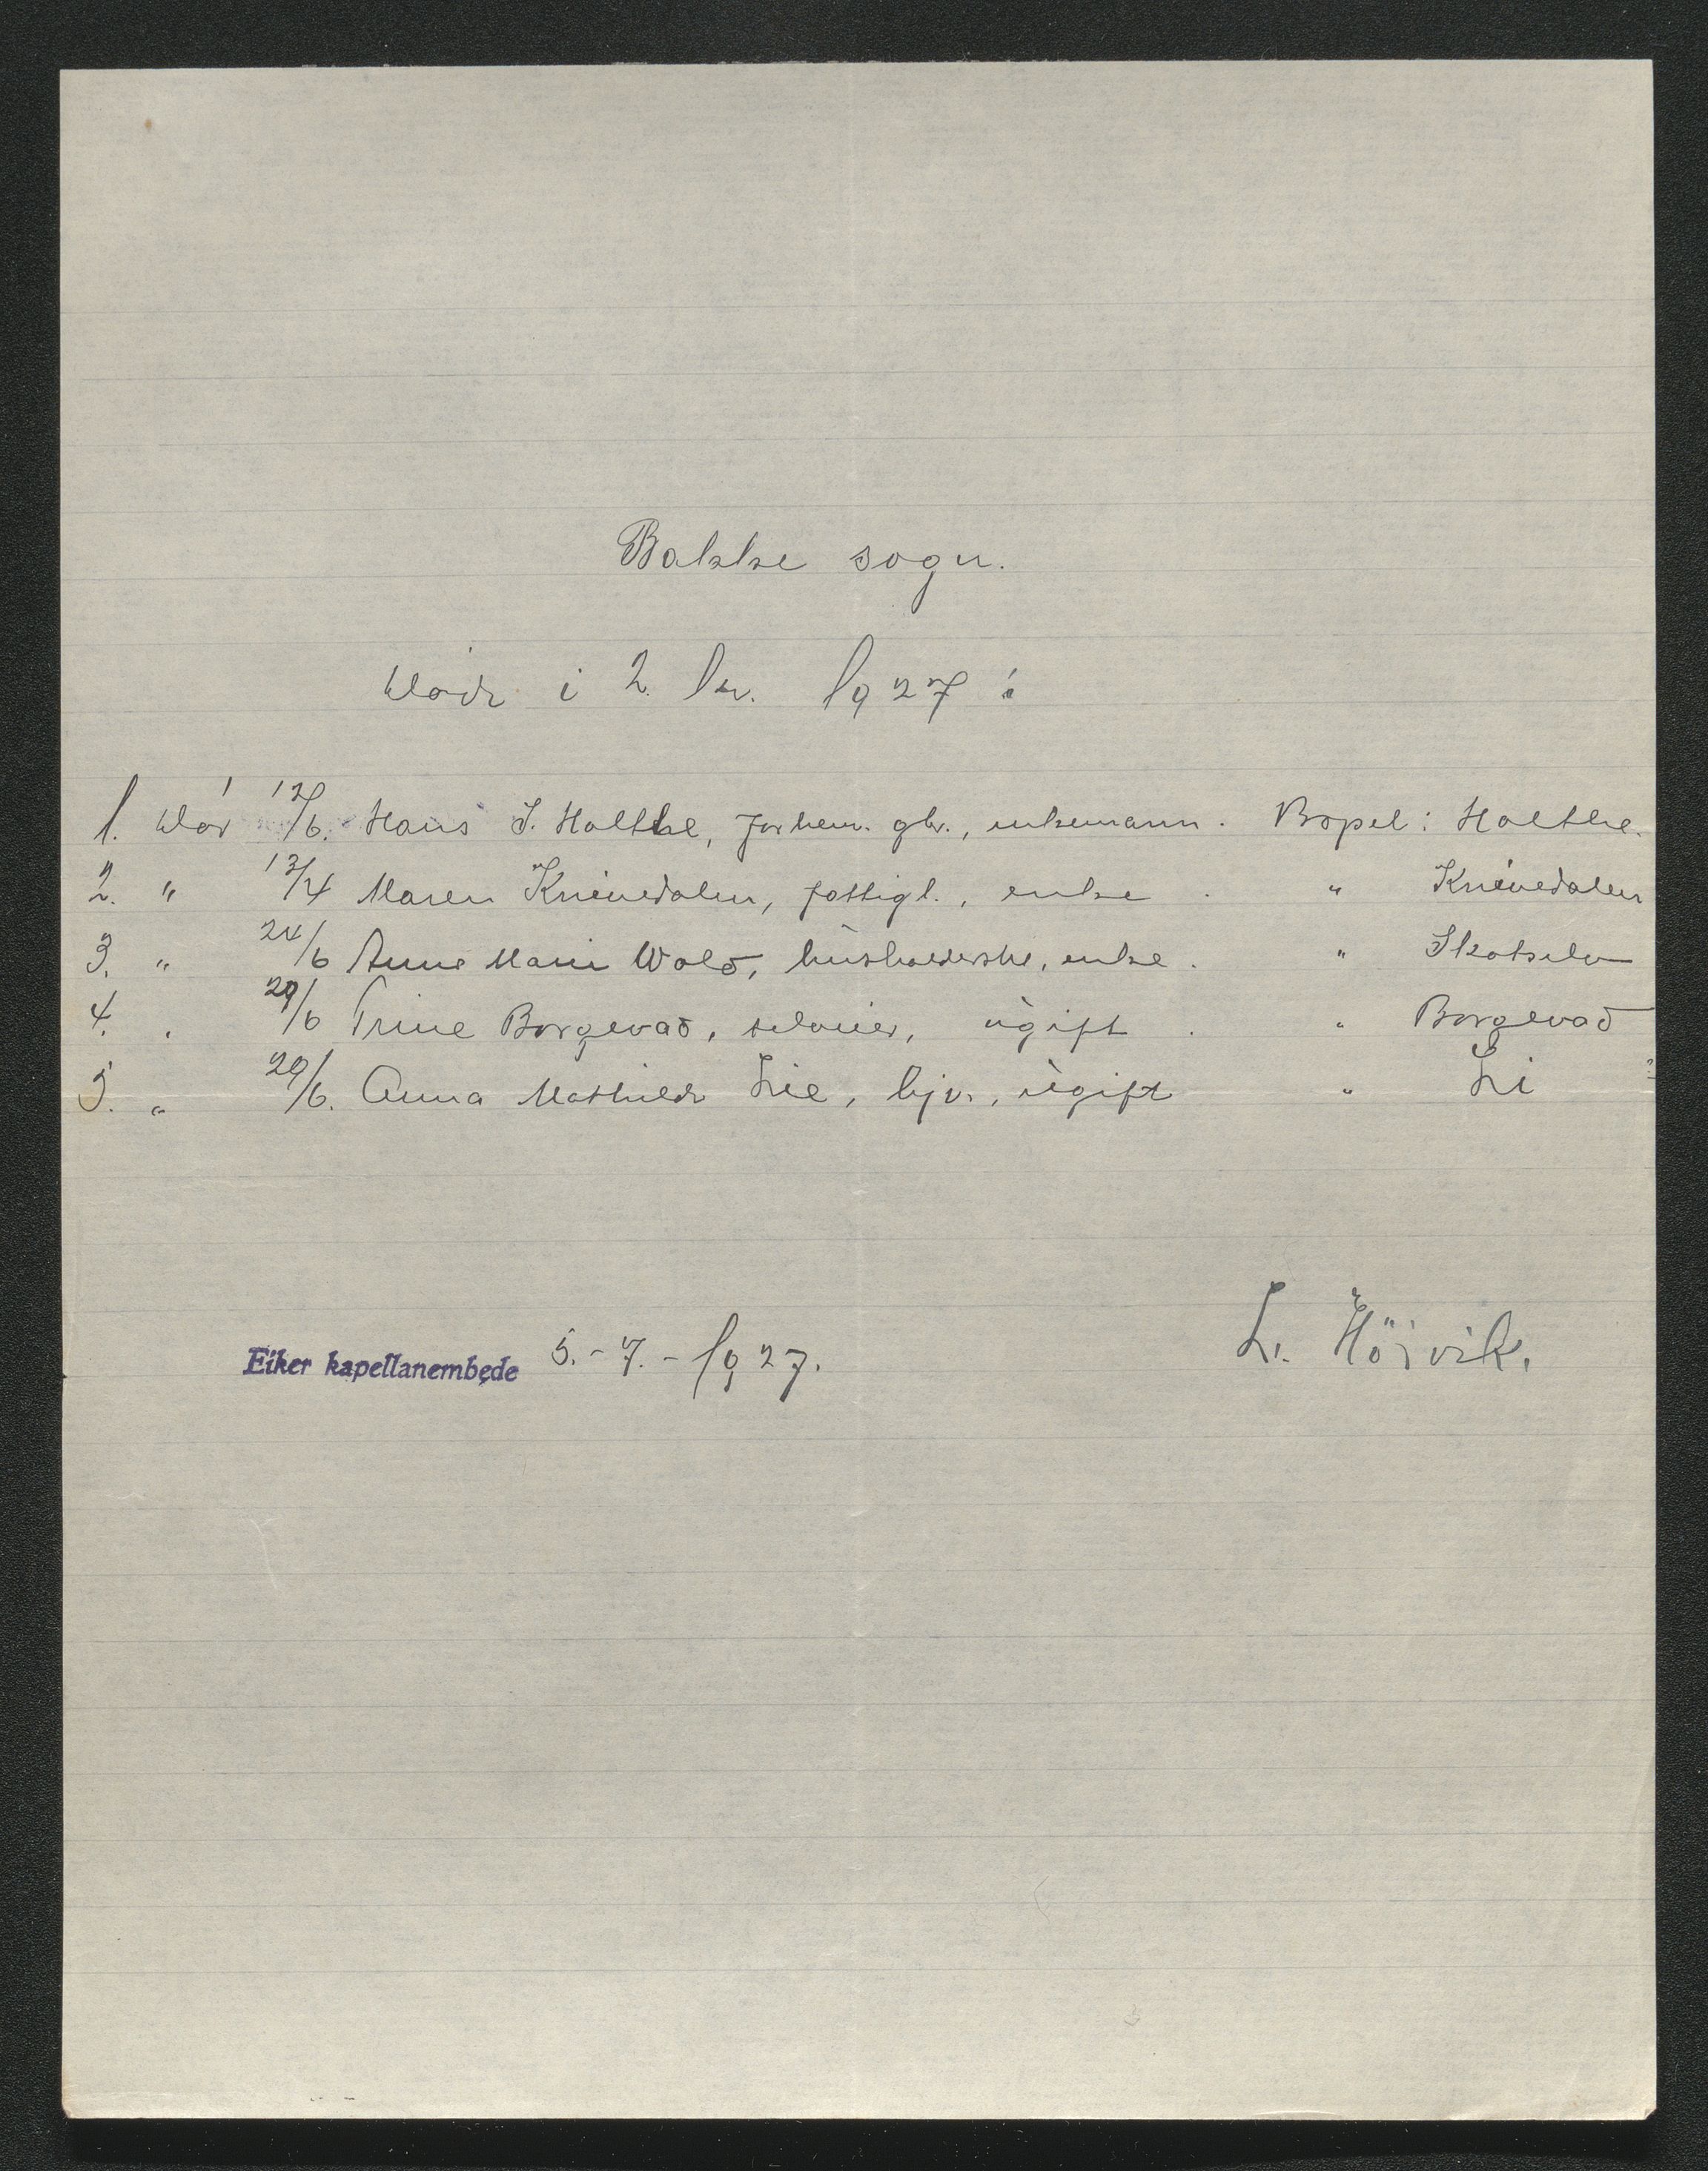 Bakke sogn.
Døde i 2. kv. 1927:
1. Død 12/6. Hans J. Holtke, forhenv. gbr., enkemann. Bopel: Holtke.
2. " 13/4 Maren Knivedalen, fattigl., enke . " Knivedalen
3. " 24/6 Anne Marie Wold, husholderske, enke. " Skotselv
4. " 29/6 Trine Borgevad, selveier, ugift . " Borgevad
5. " 29/6. Anna Mathilde Lie, hjv., ugift " Li
Eiker kapellanembede 5.-7.-1927. L. Höivik.